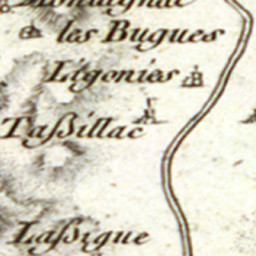 les Bugues
Ligonies
Taßillac
Laßigue